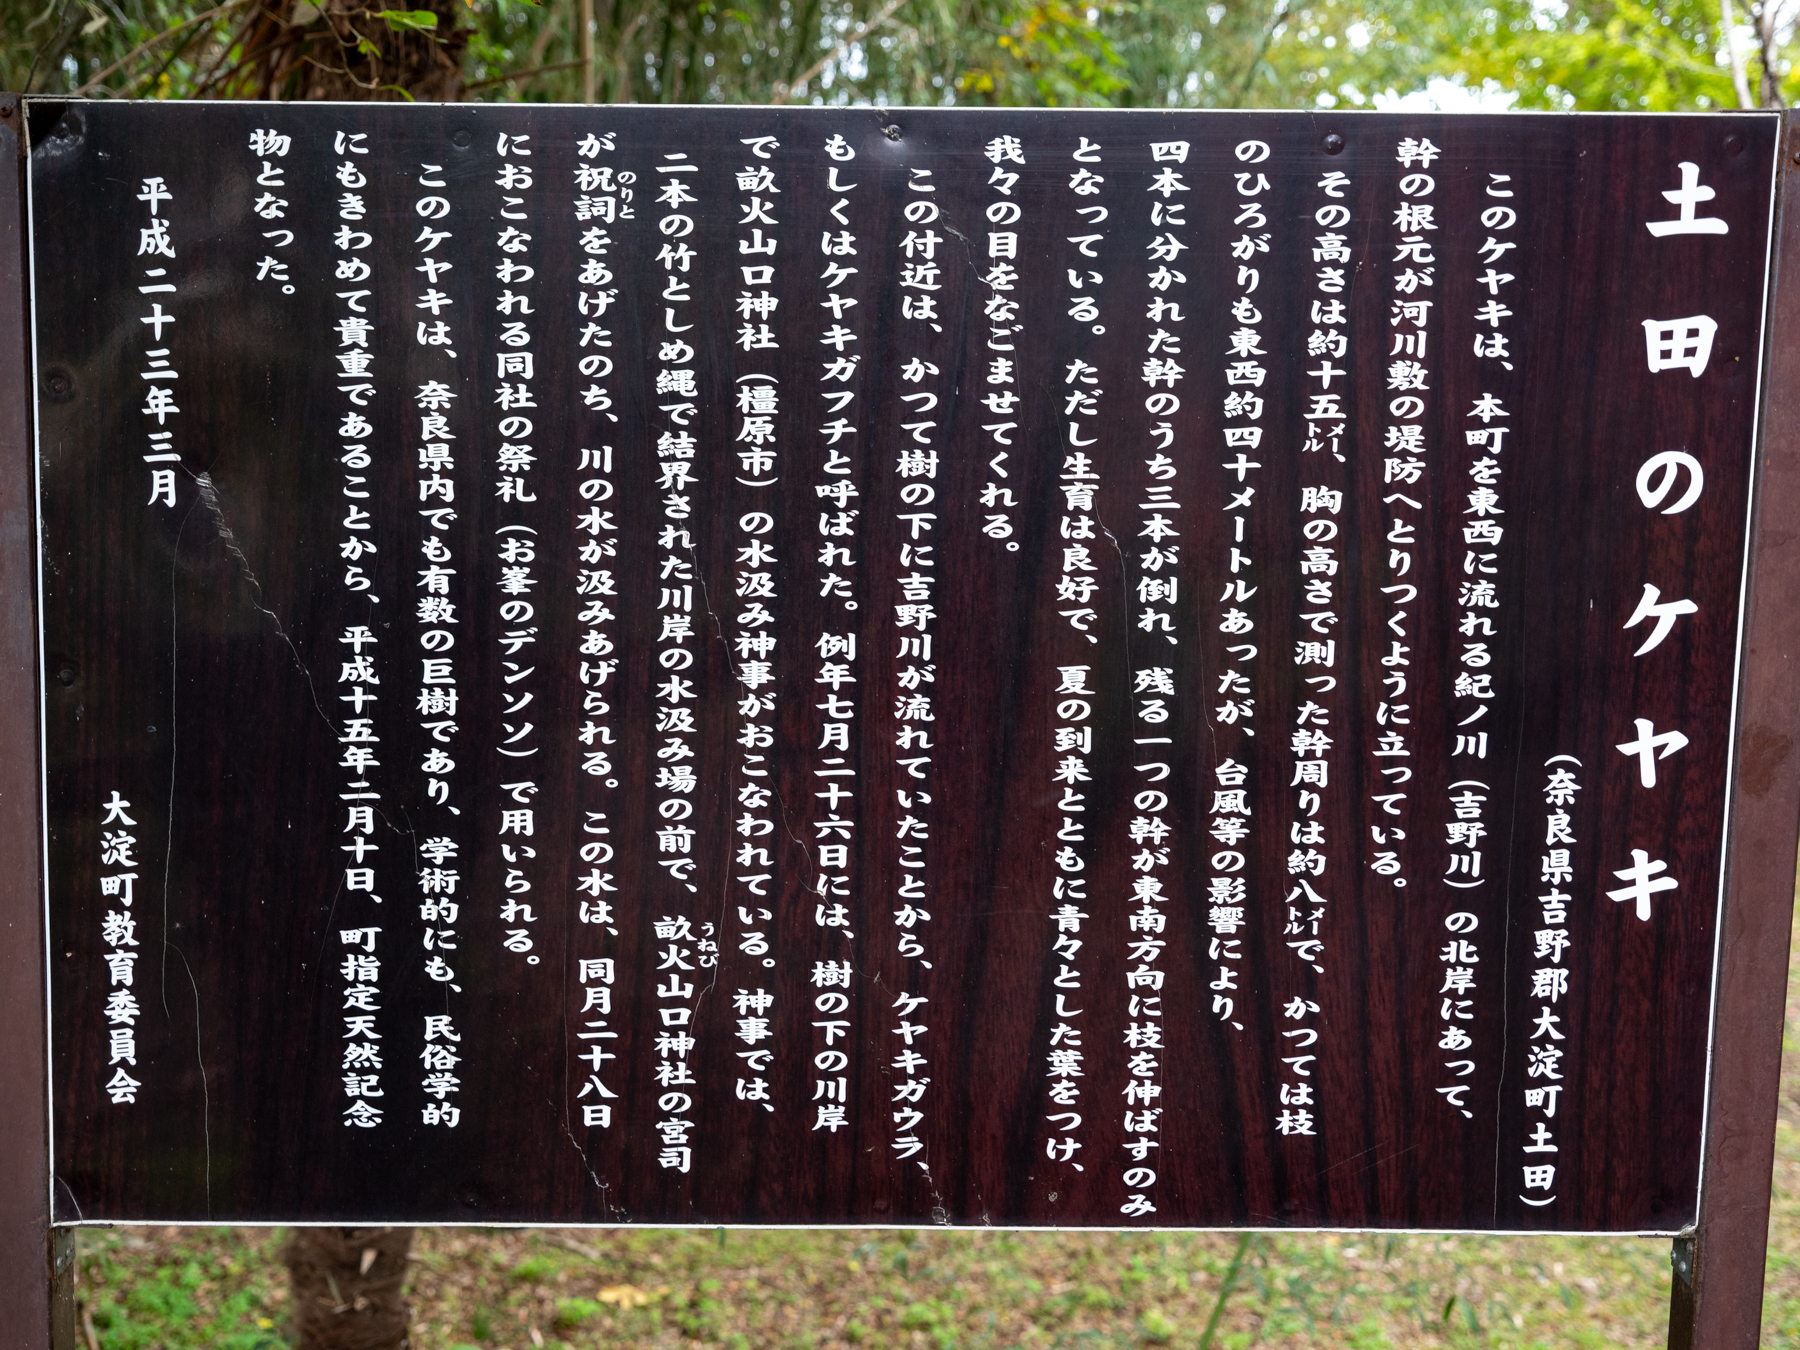 土田のケヤキ
（奈良県吉野郡大淀町土田）
このケヤキは、本町を東西に流れる紀ノ川（吉野川）の北岸にあって、
幹の根元が河川敷の堤防へとりつくように立っている。
その高さは約十五メートル、胸の高さで測った幹周りは約八メートルで、かつては枝
のひろがりも東西約四十メートルあったが、台風等の影響により、
四本に分かれた幹のうち三本が倒れ、残る一つの幹が東南方向に枝を伸ばすのみ
となっている。ただし生育は良好で、夏の到来とともに青々とした葉をつけ、
我々の目をなごませてくれる。
この付近は、かつて樹の下に吉野川が流れていたことから、ケヤキガウラ、
もしくはケヤキガフチと呼ばれた。例年七月二十六日には、樹の下の川岸
で畝火山口神社（橿原市）の水汲み神事がおこなわれている。神事では、
二本の竹としめ縄で結界された川岸の水汲み場の前で、畝火山口神社の宮司
うねび
が祝詞をあげたのち、川の水が汲みあげられる。この水は、同月二十八日
のりと
におこなわれる同社の祭礼（お峯のデンソソ）で用いられる。
このケヤキは、奈良県内でも有数の巨樹であり、学術的にも、民俗学的
にもきわめて貴重であることから、平成十五年二月十日、町指定天然記念
物となった。
平成二十三年三月
大淀町教育委員会